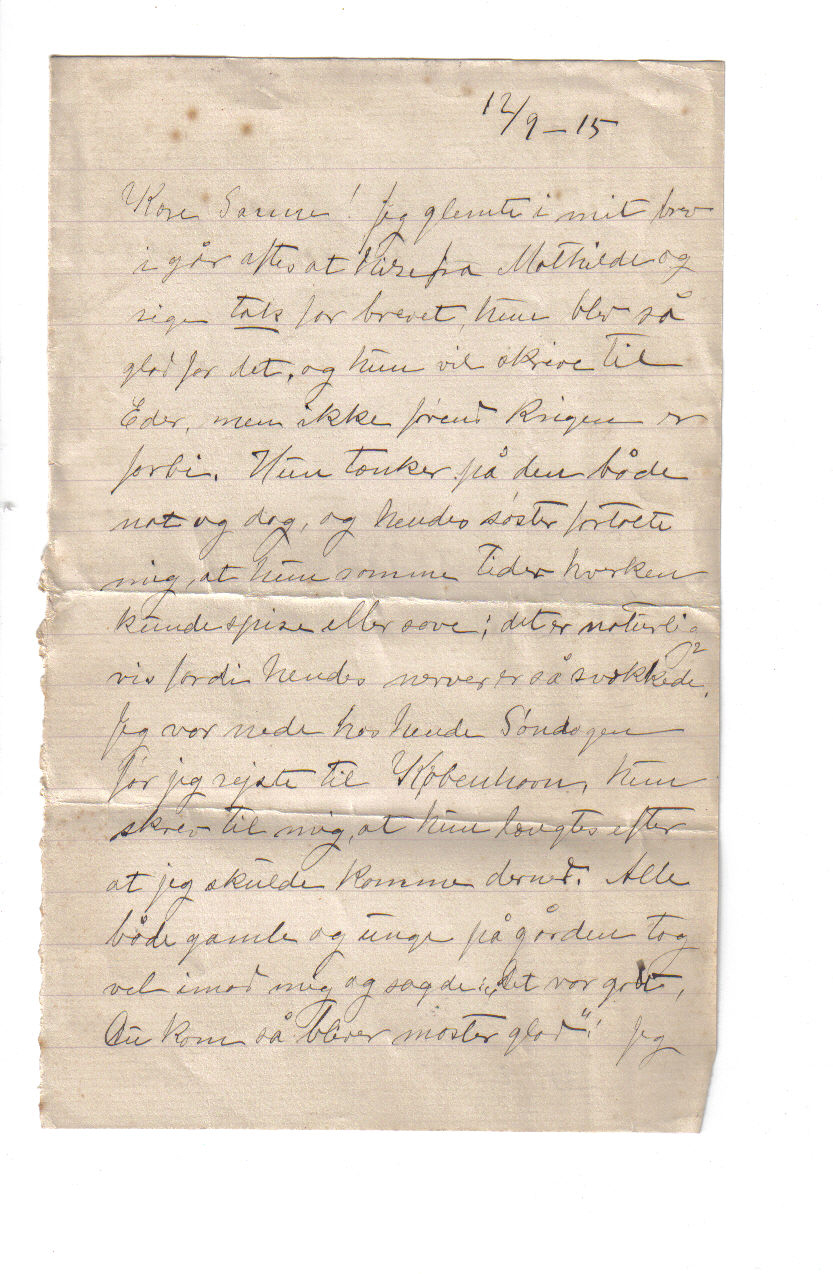 12/9 – 15
Kære Sanne! Jeg glemte i mit brev
i går aftes at hilse fra Mathilde og
sige tak for brevet, hun blev så
glad for det, og hun vil skrive til
Eder, men ikke førend Krigen er
forbi. Hun tænker på den både
nat og dag, og hendes søster fortalte
mig, at hun somme tider hverken
kunde spise eller sove; det er naturlig
vis fordi hendes nerver er så svækkede.
Jeg var nede hos hende Søndagen
før jeg rejste til København, hun
skrev til mig, at hun længtes efter
at jeg skulde komme derned. Alle
både gamle og unge på gården tog
vel imod mig og sagde: „Det var godt,
Du kom så bliver moster glad“! Jeg